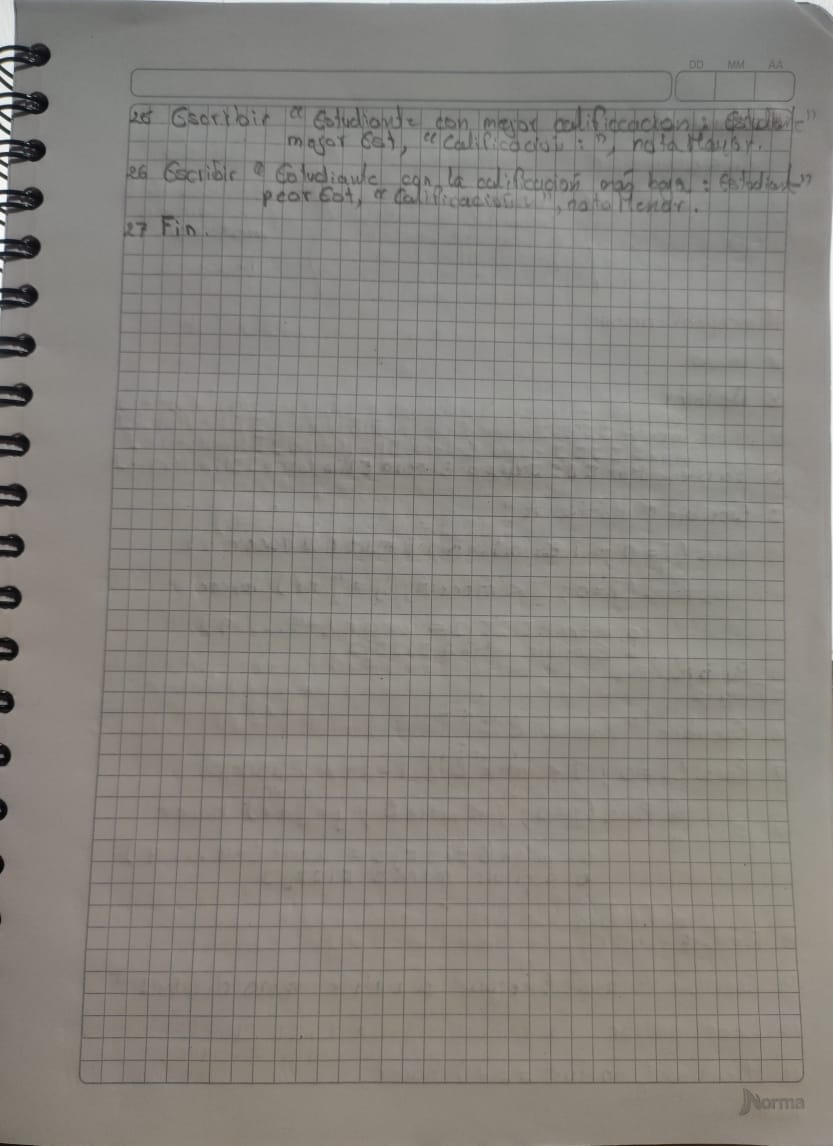 DD MM AA
25 Escribir "Estudiante con mejor calificacacion: Estudiante"
mejor Est, "Calificación:", nota Mayor.
26 Escribir "Estudiante con la calificación más baja: estudiante"
peor Est, "Calificación:", nota Menor.
27 Fin.
Norma